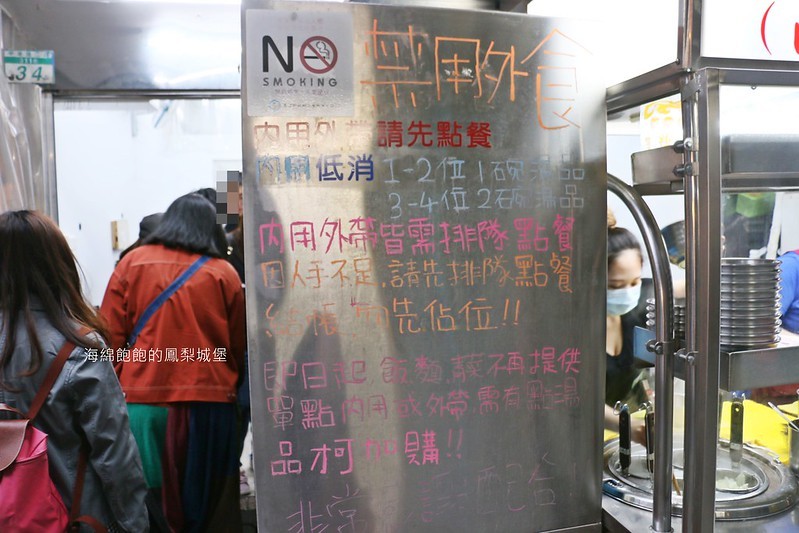 34
NO
SMOKING
禁用外食
內用外帶請先點餐
內用低消 1-2位 1碗湯品
3-4位 2碗湯品
內用外帶皆需排隊點餐
因人手不足,請先排隊點餐
結帳 勿先佔位!!
即日起 飯麵.菜不再提供
單點內用或外帶.需有點湯
品才可加購!!
非常 配合
海綿飽飽的鳳梨城堡